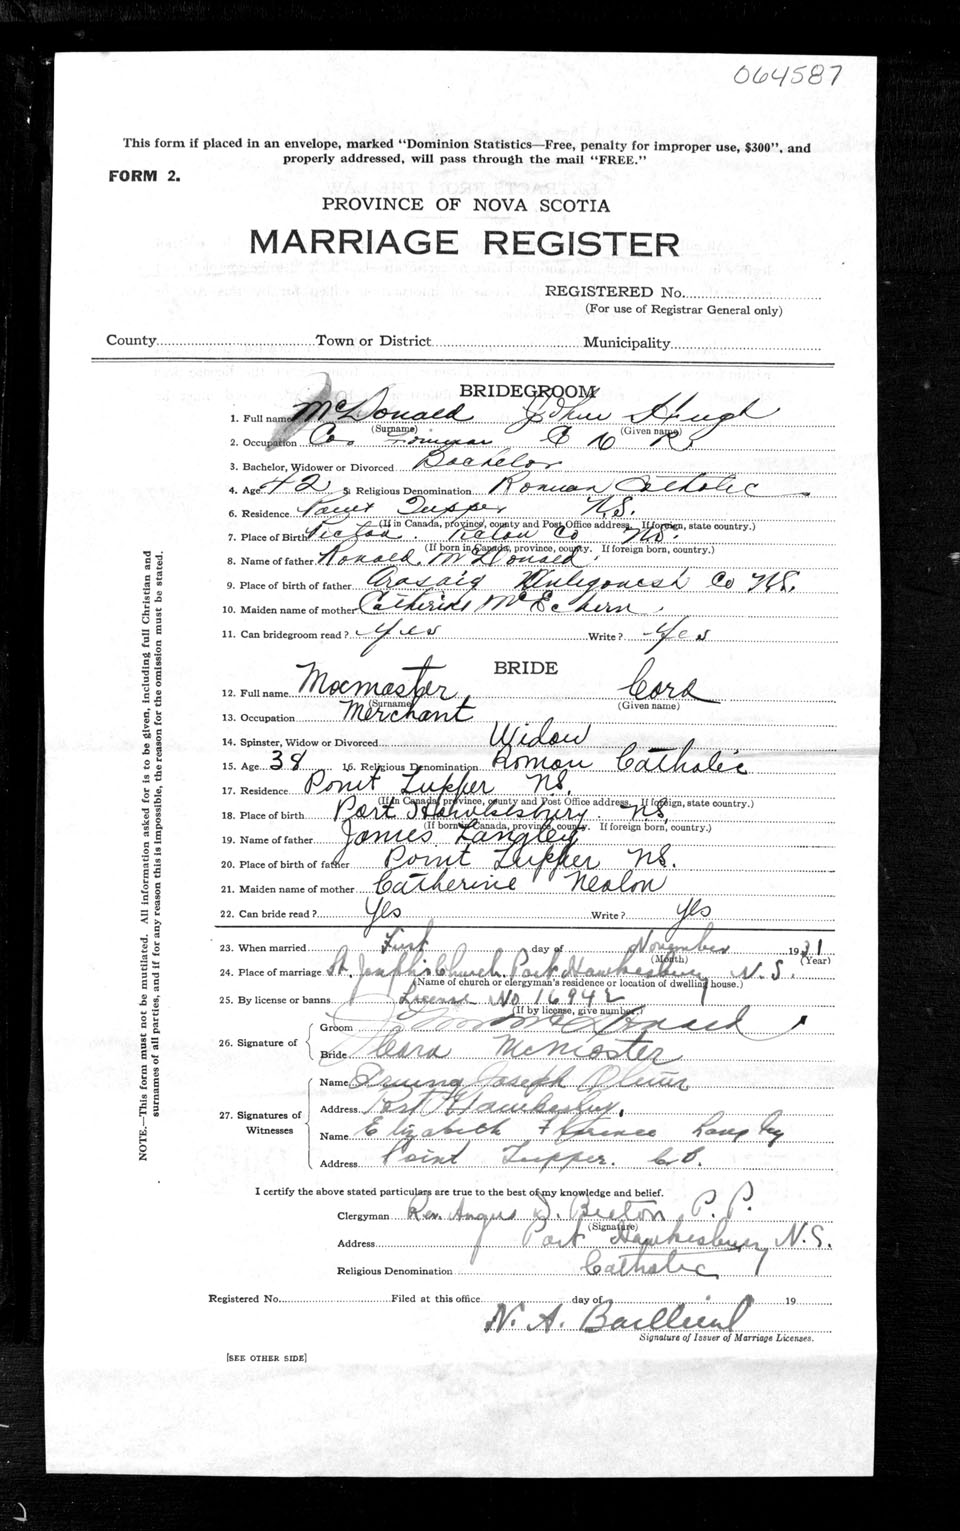 064587
This form if placed in an envelope, marked "Dominion Statistics—Free, penalty for improper use, $300", and
properly addressed, will pass through the mail "FREE."
FORM 2.
PROVINCE OF NOVA SCOTIA
MARRIAGE REGISTER
REGISTERED No.
(For use of Registrar General only)
County Town or District Municipality
BRIDEGROOM
1. Full name McDonald John Hugh
(Surname) (Given name)
2. Occupation Co. C N R
3. Bachelor, Widower or Divorced Bachelor
4. Age 42 5. Religious Denomination Roman Catholic
6. Residence Point Tupper N.S.
(If in Canada, province, county and Post Office address. If foreign, state country.)
7. Place of Birth Pictou. Pictou Co N.S.
(If born in Canada, province, county. If foreign born, country.)
8. Name of father Ronald McDonald.
9. Place of birth of father Arasaig Antigonish Co N.S.
10. Maiden name of mother Catherine McEchern.
11. Can bridegroom read? Yes Write? Yes
BRIDE
12. Full name Macmaster Cora
(Surname) (Given name)
13. Occupation Merchant
14. Spinster, Widow or Divorced Widow
15. Age 38 16. Religious Denomination Roman Catholic
17. Residence Point Tupper NS.
(If in Canada, province, county and Post Office address. If foreign, state country.)
18. Place of birth Port Hawkesbury. NS.
(If born in Canada, province, county. If foreign born, country.)
19. Name of father James Langley
20. Place of birth of father Point Tupper NS.
21. Maiden name of mother Catherine Nealon
22. Can bride read? Yes Write? Yes
23. When married First day of November 1931
(Month) (Year)
24. Place of marriage St. Joseph's Church. Port Hawkesbury N.S.
(Name of church or clergyman's residence or location of dwelling house.)
25. By license or banns License No 16942
(If by license, give number.)
26. Signature of
Groom J McDonald
Bride Cora McMaster
27. Signatures of Witnesses
Name Joseph
Address Port Hawkesbury.
Name Elizabeth Florence Langley
Address Point Tupper. C.B.
I certify the above stated particulars are true to the best of my knowledge and belief.
Clergyman Rev. Angus D. Beeton P.P.
(Signature)
Address Port Hawkesbury, N.S.
Religious Denomination Catholic
Registered No. Filed at this office day of 19
N. A. Baillieul
Signature of Issuer of Marriage Licenses.
[SEE OTHER SIDE]
NOTE.—This form must not be mutilated. All information asked for is to be given, including full Christian and
surnames of all parties, and if for any reason this is impossible, the reason for the omission must be stated.